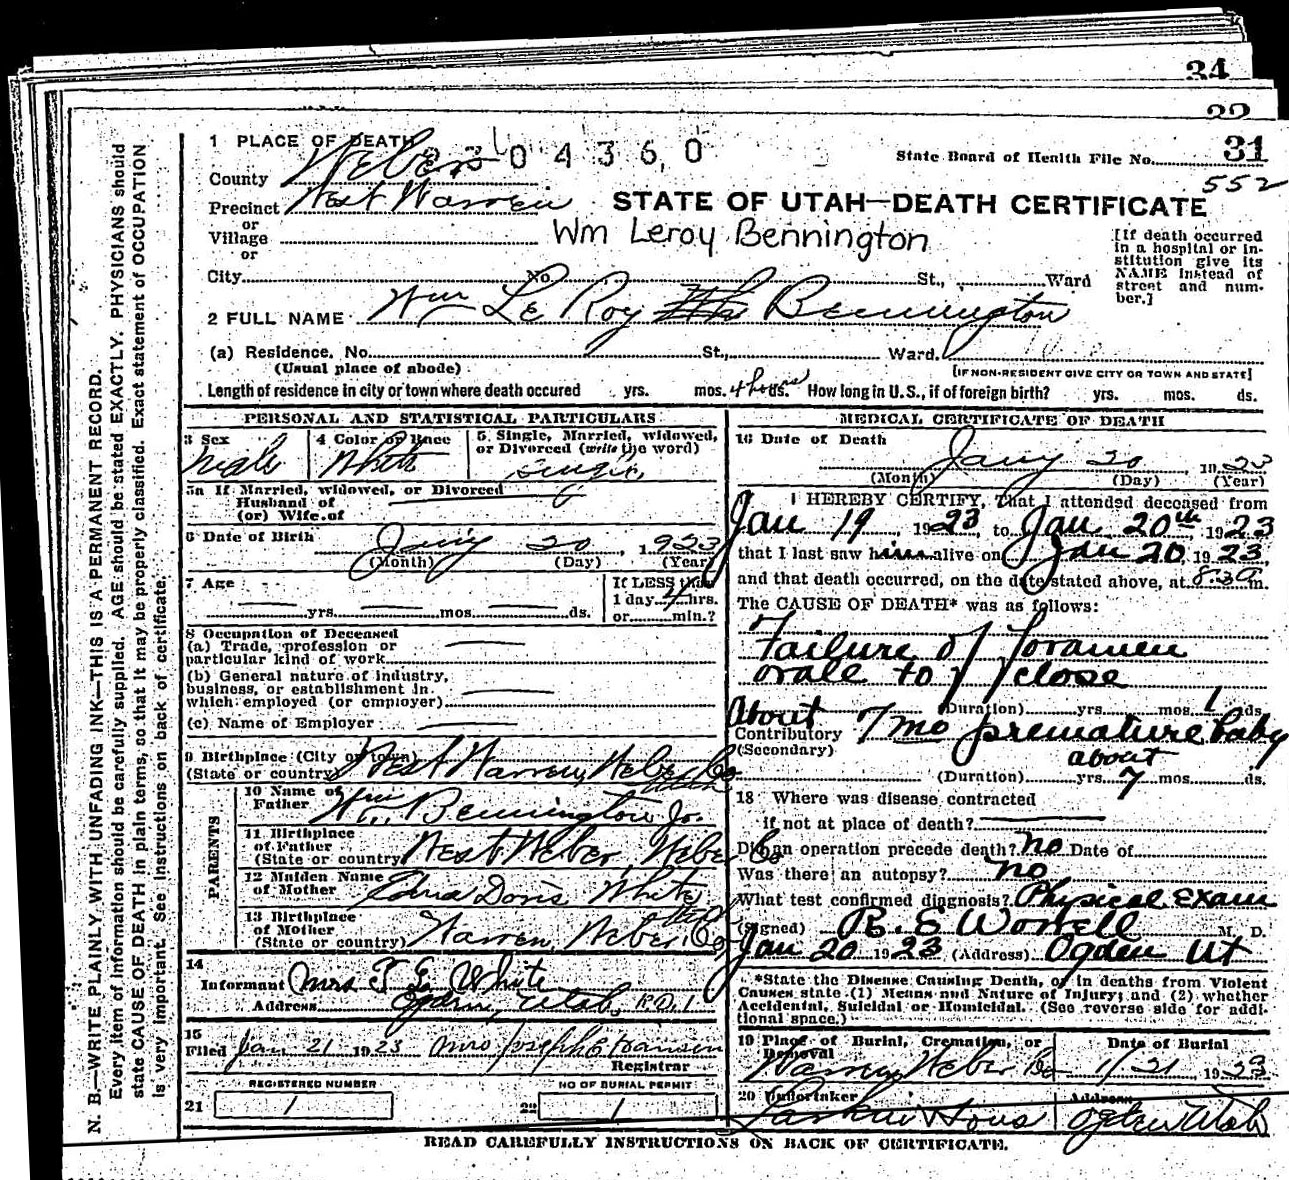 34
22
31
552
1 PLACE OF DEATH
State Board of Health File No.
County Weber 304360
Precinct West Warren
STATE OF UTAH—DEATH CERTIFICATE
or
Village
Wm Leroy Bennington
or
City No. St., Ward
[If death occurred
in a hospital or in-
stitution give its
NAME instead of
street and num-
ber.]
2 FULL NAME Wm Le Roy Bennington
(a) Residence. No. St., Ward.
(Usual place of abode)
[IF NON-RESIDENT GIVE CITY OR TOWN AND STATE]
Length of residence in city or town where death occured yrs. mos. 4 hours ds. How long in U.S., if of foreign birth? yrs. mos. ds.
PERSONAL AND STATISTICAL PARTICULARS
3 Sex
Male
4 Color or Race
White
5. Single, Married, widowed,
or Divorced (write the word)
Single
5a If Married, widowed, or Divorced
Husband of
(or) Wife of
6 Date of Birth
Jany 20, 1923
(Month) (Day) (Year)
7 Age
yrs. mos. ds.
If LESS than
1 day 4 hrs.
or min.?
8 Occupation of Deceased
(a) Trade, profession or
particular kind of work
(b) General nature of industry,
business, or establishment in
which employed (or employer)
(c) Name of Employer
9 Birthplace (City or town)
(State or country) West Warren, Weber Co
Utah
PARENTS
10 Name of
Father Wm. Bennington Jr.
11 Birthplace
of Father
(State or country) West Weber, Weber Co
12 Maiden Name
of Mother Edna Doris White
13 Birthplace
of Mother
(State or country) Warren, Weber Co
Utah
14
Informant Mrs T. E. White
Address Ogden, Utah, R.D. 1
15
Filed Jan 21 1923 Mrs Joseph E Hansen
Registrar
REGISTERED NUMBER
21 1
NO OF BURIAL PERMIT
22 1
MEDICAL CERTIFICATE OF DEATH
16 Date of Death
Jany 20, 1923
(Month) (Day) (Year)
I HEREBY CERTIFY, that I attended deceased from
Jan 19 1923, to Jan 20th, 1923
that I last saw him alive on Jan 20, 1923,
and that death occurred, on the date stated above, at 8:30 m.
The CAUSE OF DEATH* was as follows:
Failure of foramen
ovale to close
(Duration) yrs. mos. 1 ds.
Contributory About 7 mo premature baby
(Secondary)
about
(Duration) yrs. 7 mos. ds.
18 Where was disease contracted
if not at place of death?
Did an operation precede death? no Date of
Was there an autopsy? no
What test confirmed diagnosis? Physical Exam
(Signed) R. E Worrell M. D.
Jan 20 1923 (Address) Ogden Ut
*State the Disease Causing Death, or in deaths from Violent
Causes state (1) Means and Nature of Injury; and (2) whether
Accidental, Suicidal or Homicidal. (See reverse side for addi-
tional space.)
19 Place of Burial, Cremation, or
Removal
Warren, Weber Co
Date of Burial
1/21 1923
20 Undertaker
Larkin & Sons
Address
Ogden Utah
READ CAREFULLY INSTRUCTIONS ON BACK OF CERTIFICATE.
N. B.—WRITE PLAINLY WITH UNFADING INK—THIS IS A PERMANENT RECORD.
Every item of information should be carefully supplied. AGE should be stated EXACTLY. PHYSICIANS should
state CAUSE OF DEATH in plain terms, so that it may be properly classified. Exact statement of OCCUPATION
is very important. See instructions on back of certificate.